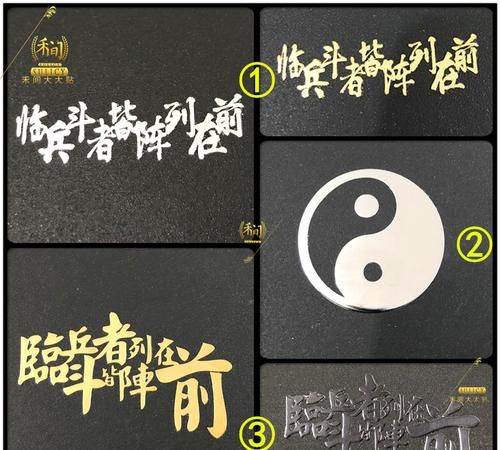 禾间
SHLICY
禾间大大贴
临兵斗者皆阵列在前
①
临兵斗者皆阵列在前
②
禾间
臨兵斗者皆陣列在前
③
臨兵斗者皆陣列在前